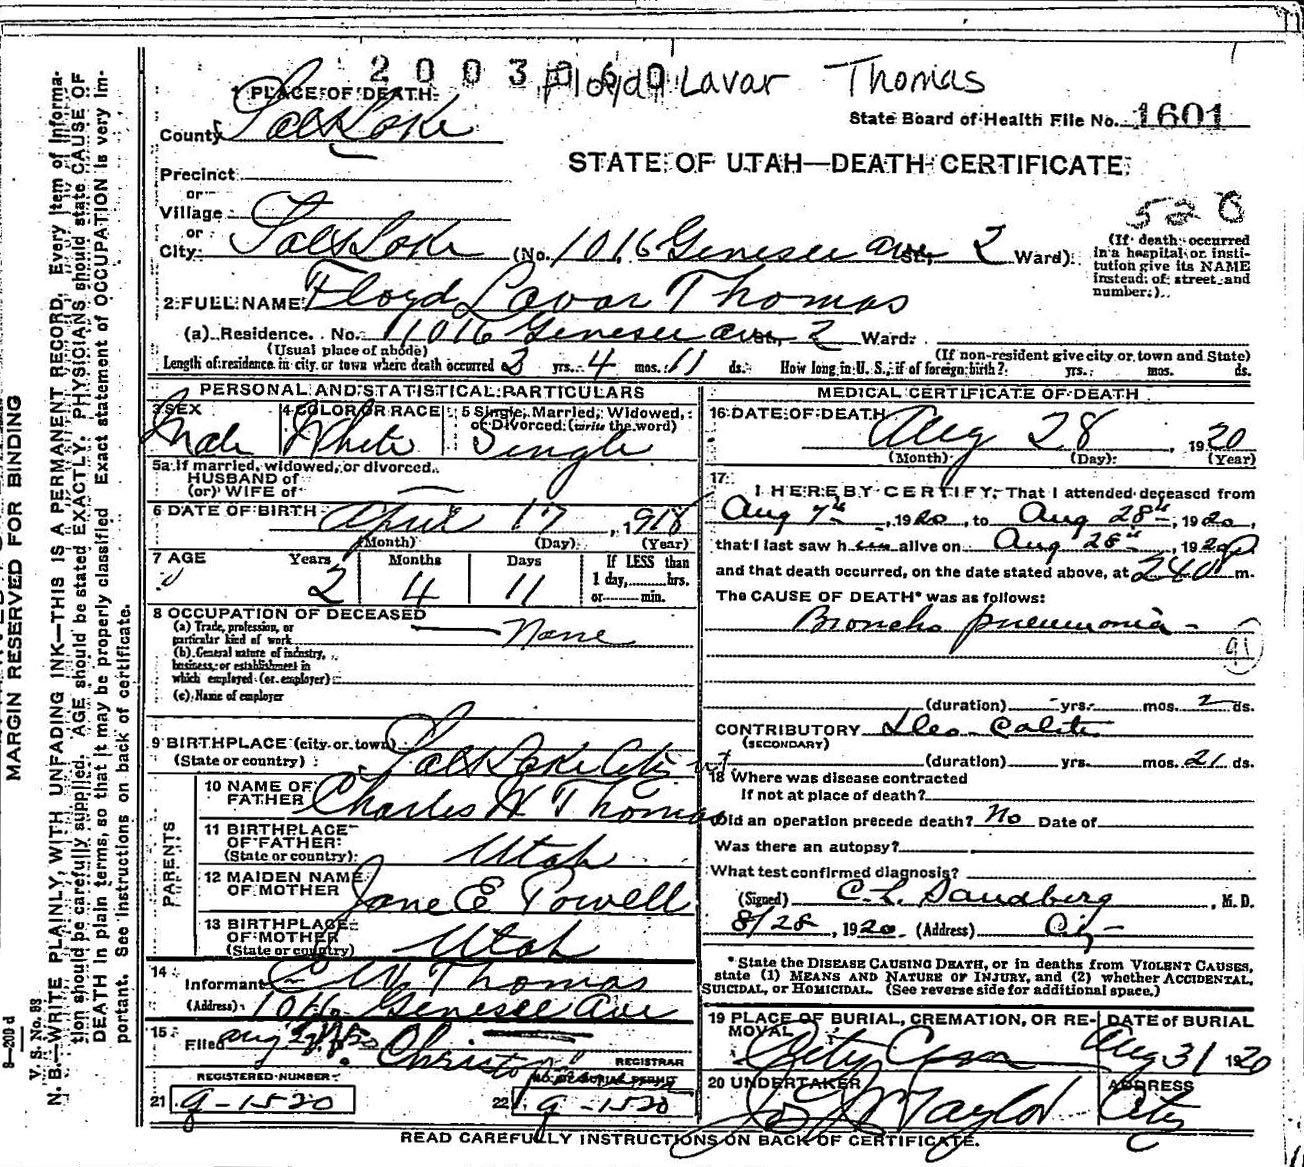 2003060 Floyd Lavar Thomas
1 PLACE OF DEATH
County Salt Lake
State Board of Health File No. 1601
STATE OF UTAH—DEATH CERTIFICATE
Precinct
or
Village
or
City Salt Lake (No. 1016 Genesee ave St., 2 Ward)
520
(If death occurred
in a hospital or insti-
tution give its NAME
instead of street and
number.)
2 FULL NAME Floyd Lavar Thomas
(a) Residence. No. 1016 Genesee ave St., 2 Ward.
(Usual place of abode) (If non-resident give city or town and State)
Length of residence in city or town where death occurred 2 yrs. 4 mos. 11 ds. How long in U. S., if of foreign birth? yrs. mos. ds.
PERSONAL AND STATISTICAL PARTICULARS
3 SEX 4 COLOR OR RACE 5 Single, Married, Widowed,
or Divorced (write the word)
Male White Single
5a If married, widowed, or divorced
HUSBAND of
(or) WIFE of
6 DATE OF BIRTH April 17, 1918
(Month) (Day) (Year)
7 AGE Years Months Days If LESS than
1 day, hrs.
or min.
2 4 11
8 OCCUPATION OF DECEASED
(a) Trade, profession, or
particular kind of work None
(b) General nature of industry,
business, or establishment in
which employed (or employer)
(c) Name of employer
9 BIRTHPLACE (city or town)
(State or country) Salt Lake City ut
PARENTS
10 NAME OF
FATHER Charles W Thomas
11 BIRTHPLACE
OF FATHER
(State or country) Utah
12 MAIDEN NAME
OF MOTHER Jane E Powell
13 BIRTHPLACE
OF MOTHER
(State or country) Utah
14 Informant C W Thomas
(Address) 1016 Genesee Ave
15 Filed aug
REGISTRAR
REGISTERED NUMBER
21 g-1520 22 g-1520
MEDICAL CERTIFICATE OF DEATH
16 DATE OF DEATH Aug 28 1920
(Month) (Day) (Year)
17
I HEREBY CERTIFY, That I attended deceased from
Aug 7th, 1920, to Aug 28th, 1920,
that I last saw him alive on Aug 28th, 1920
and that death occurred, on the date stated above, at 240 m.
The CAUSE OF DEATH* was as follows:
Broncho pneumonia -
91
(duration) - yrs. mos. 2 ds.
CONTRIBUTORY Ileo-Colitis
(SECONDARY)
(duration) yrs. mos. 21 ds.
18 Where was disease contracted
If not at place of death?
Did an operation precede death? No Date of
Was there an autopsy?
What test confirmed diagnosis?
(Signed) C. L. Sandberg, M. D.
8/28, 1920 (Address) City
* State the DISEASE CAUSING DEATH, or in deaths from VIOLENT CAUSES,
state (1) MEANS AND NATURE OF INJURY, and (2) whether ACCIDENTAL,
SUICIDAL, or HOMICIDAL. (See reverse side for additional space.)
19 PLACE OF BURIAL, CREMATION, OR RE-
MOVAL City Cem
DATE of BURIAL
Aug 31 1920
20 UNDERTAKER
Taylor
ADDRESS
City
READ CAREFULLY INSTRUCTIONS ON BACK OF CERTIFICATE.
MARGIN RESERVED FOR BINDING
8—200 d
V. S. No. 93
N. B.—WRITE PLAINLY, WITH UNFADING INK—THIS IS A PERMANENT RECORD. Every Item of Informa-
tion should be carefully supplied. AGE should be stated EXACTLY. PHYSICIANS should state CAUSE OF
DEATH in plain terms, so that it may be properly classified. Exact statement of OCCUPATION is very Im-
portant. See instructions on back of certificate.